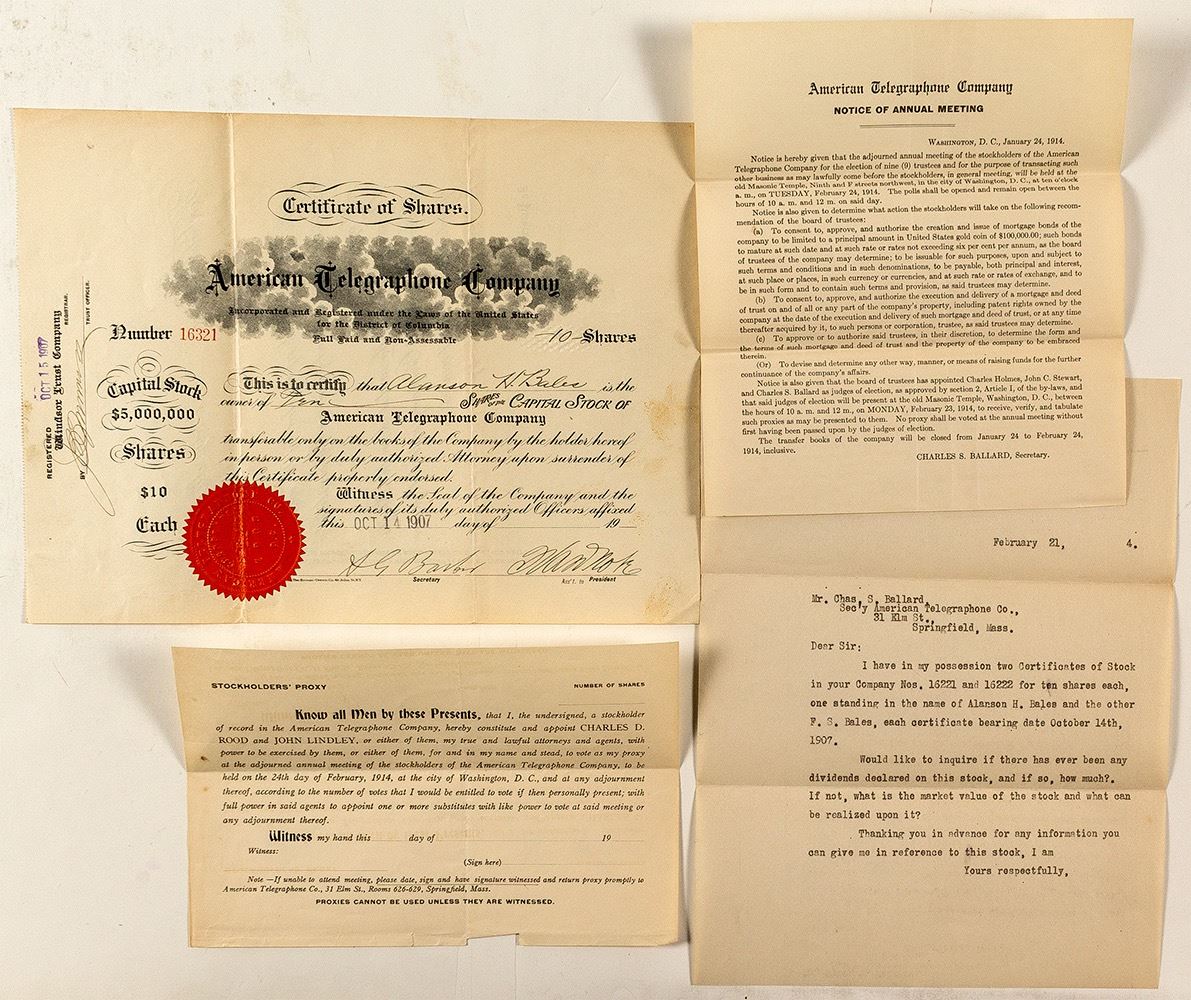 Certificate of Shares.
American Telegraphone Company
Incorporated and Registered under the Laws of the United States
for the District of Columbia
Full Paid and Non-Assessable
Number 16321
10 Shares
REGISTERED OCT 15 1907
Windsor Trust Company
REGISTRAR.
BY
TRUST OFFICER.
Capital Stock
$5,000,000
Shares
$10
Each
This is to certify that Alanson H. Bales is the
owner of Ten Shares of the Capital Stock of
American Telegraphone Company
transferable only on the books of the Company by the holder hereof
in person or by duly authorized Attorney upon surrender of
this Certificate properly endorsed.
Witness the Seal of the Company and the
signatures of its duly authorized Officers affixed
this OCT 14 1907 day of 19
Secretary
Ass't. to President
American Telegraphone Company
NOTICE OF ANNUAL MEETING
WASHINGTON, D. C., January 24, 1914.
Notice is hereby given that the adjourned annual meeting of the stockholders of the American
Telegraphone Company for the election of nine (9) trustees and for the purpose of transacting such
other business as may lawfully come before the stockholders, in general meeting, will be held at the
old Masonic Temple, Ninth and F streets northwest, in the city of Washington, D. C., at ten o'clock
a. m., on TUESDAY, February 24, 1914. The polls shall be opened and remain open between the
hours of 10 a. m. and 12 m. on said day.
Notice is also given to determine what action the stockholders will take on the following recom-
mendation of the board of trustees:
(a) To consent to, approve, and authorize the creation and issue of mortgage bonds of the
company to be limited to a principal amount in United States gold coin of $100,000.00; such bonds
to mature at such date and at such rate or rates not exceeding six per cent per annum, as the board
of trustees of the company may determine; to be issuable for such purposes, upon and subject to
such terms and conditions and in such denominations, to be payable, both principal and interest,
at such place or places, in such currency or currencies, and at such rate or rates of exchange, and to
be in such form and to contain such terms and provision, as said trustees may determine.
(b) To consent to, approve, and authorize the execution and delivery of a mortgage and deed
of trust on and of all or any part of the company's property, including patent rights owned by the
company at the date of the execution and delivery of such mortgage and deed of trust, or at any time
thereafter acquired by it, to such persons or corporation, trustee, as said trustees may determine.
(c) To approve or to authorize said trustees, in their discretion, to determine the form and
the terms of such mortgage and deed of trust and the property of the company to be embraced
therein.
(Or) To devise and determine any other way, manner, or means of raising funds for the further
continuance of the company's affairs.
Notice is also given that the board of trustees has appointed Charles Holmes, John C. Stewart,
and Charles S. Ballard as judges of election, as approved by section 2, Article I, of the by-laws, and
that said judges of election will be present at the old Masonic Temple, Washington, D. C., between
the hours of 10 a. m. and 12 m., on MONDAY, February 23, 1914, to receive, verify, and tabulate
such proxies as may be presented to them. No proxy shall be voted at the annual meeting without
first having been passed upon by the judges of election.
The transfer books of the company will be closed from January 24 to February 24,
1914, inclusive.
CHARLES S. BALLARD, Secretary.
STOCKHOLDERS' PROXY
NUMBER OF SHARES
Know all Men by these Presents, that I, the undersigned, a stockholder
of record in the American Telegraphone Company, hereby constitute and appoint CHARLES D.
ROOD and JOHN LINDLEY, or either of them, my true and lawful attorneys and agents, with
power to be exercised by them, or either of them, for and in my name and stead, to vote as my proxy
at the adjourned annual meeting of the stockholders of the American Telegraphone Company, to be
held on the 24th day of February, 1914, at the city of Washington, D. C., and at any adjournment
thereof, according to the number of votes that I would be entitled to vote if then personally present; with
full power in said agents to appoint one or more substitutes with like power to vote at said meeting or
any adjournment thereof.
Witness my hand this day of 19
Witness:
(Sign here)
Note —If unable to attend meeting, please date, sign and have signature witnessed and return proxy promptly to
American Telegraphone Co., 31 Elm St., Rooms 626-629, Springfield, Mass.
PROXIES CANNOT BE USED UNLESS THEY ARE WITNESSED.
February 21, 4.
Mr. Chas. S. Ballard,
Sec'y American Telographone Co.,
31 Elm St.,
Springfield, Mass.
Dear Sir:
I have in my possession two Certificates of Stock
in your Company Nos. 16221 and 16222 for ten shares each,
one standing in the name of Alanson H. Bales and the other
F. S. Bales, each certificate bearing date October 14th,
1907.
Would like to inquire if there has ever been any
dividends declared on this stock, and if so, how much?.
If not, what is the market value of the stock and what can
be realized upon it?
Thanking you in advance for any information you
can give me in reference to this stock, I am
Yours respectfully,